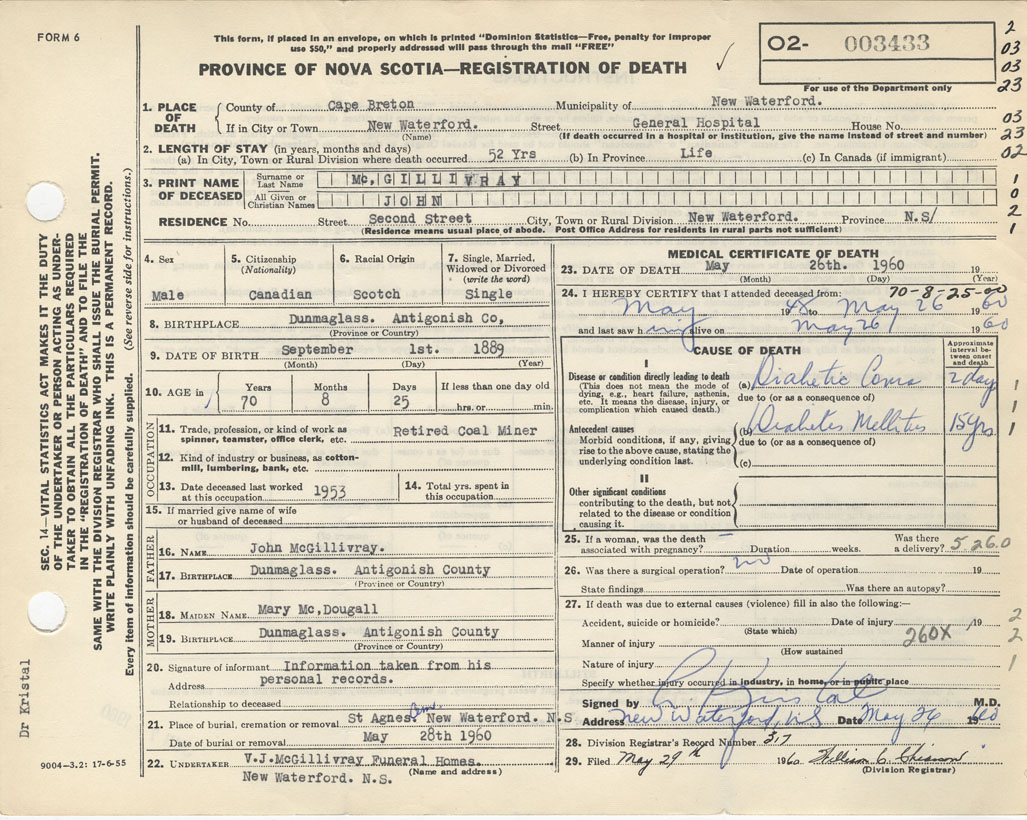 FORM 6
This form, if placed in an envelope, on which is printed “Dominion Statistics—Free, penalty for improper
use $50,” and properly addressed will pass through the mail “FREE”
PROVINCE OF NOVA SCOTIA—REGISTRATION OF DEATH ✓
O2- 003433
For use of the Department only
2
03
03
23
03
23
02
1
0
2
1
1. PLACE OF DEATH { County of Cape Breton Municipality of New Waterford.
If in City or Town New Waterford. Street General Hospital House No.
(Name) (If death occurred in a hospital or institution, give the name instead of street and number)
2. LENGTH OF STAY (in years, months and days)
(a) In City, Town or Rural Division where death occurred 52 Yrs (b) In Province Life (c) In Canada (if immigrant)
3. PRINT NAME OF DECEASED { Surname or Last Name Mc,GILLIVRAY
All Given or Christian Names JOHN
RESIDENCE No. Street Second Street City, Town or Rural Division New Waterford. Province N.S/
(Residence means usual place of abode. Post Office Address for residents in rural parts not sufficient)
4. Sex
Male
5. Citizenship
(Nationality)
Canadian
6. Racial Origin
Scotch
7. Single, Married,
Widowed or Divorced
(write the word)
Single
8. BIRTHPLACE Dunmaglass. Antigonish Co,
(Province or Country)
9. DATE OF BIRTH September 1st. 1889
(Month) (Day) (Year)
10. AGE in Years Months Days If less than one day old
70 8 25 hrs. or min.
OCCUPATION
11. Trade, profession, or kind of work as
spinner, teamster, office clerk, etc. Retired Coal Miner
12. Kind of industry or business, as cotton-
mill, lumbering, bank, etc.
13. Date deceased last worked
at this occupation 1953
14. Total yrs. spent in
this occupation
15. If married give name of wife
or husband of deceased
FATHER
16. NAME John McGillivray.
17. BIRTHPLACE Dunmaglass. Antigonish County
(Province or Country)
MOTHER
18. MAIDEN NAME Mary Mc,Dougall
19. BIRTHPLACE Dunmaglass. Antigonish County
(Province or Country)
20. Signature of informant Information taken from his
Address personal records.
Relationship to deceased
21. Place of burial, cremation or removal St Agnes, Cem. New Waterford. N.S
Date of burial or removal May 28th 1960
22. UNDERTAKER V.J.McGillivray Funeral Homes.
(Name and address)
New Waterford. N.S.
MEDICAL CERTIFICATE OF DEATH
23. DATE OF DEATH May 26th. 1960 19
(Month) (Day) (Year)
70-8-25-00
24. I HEREBY CERTIFY that I attended deceased from:
May 1948 to May 26 1960
and last saw him alive on May 26 1960
CAUSE OF DEATH
Approximate
interval be-
tween onset
and death
I
Disease or condition directly leading to death
(This does not mean the mode of
dying, e.g., heart failure, asthenia,
etc. It means the disease, injury, or
complication which caused death.)
(a) Diabetic Coma 2 day
due to (or as a consequence of)
Antecedent causes
Morbid conditions, if any, giving
rise to the above cause, stating the
underlying condition last.
(b) Diabetes Mellitus 15 yrs
due to (or as a consequence of)
(c)
II
Other significant conditions
contributing to the death, but not
related to the disease or condition
causing it.
1
1
1
25. If a woman, was the death
associated with pregnancy? – Duration weeks. Was there
a delivery? 5260
26. Was there a surgical operation? no Date of operation 19
State findings Was there an autopsy?
27. If death was due to external causes (violence) fill in also the following:—
Accident, suicide or homicide? Date of injury 19 2
(State which)
Manner of injury 260X 2
(How sustained
Nature of injury 1
Specify whether injury occurred in industry, in home, or in public place
Signed by M.D.
Address New Waterford, N.S Date May 26 1960
28. Division Registrar's Record Number 37
29. Filed May 29th 1960
(Division Registrar)
SEC. 14—VITAL STATISTICS ACT MAKES IT THE DUTY
OF THE UNDERTAKER OR PERSON ACTING AS UNDER-
TAKER TO OBTAIN ALL THE PARTICULARS REQUIRED
IN THE “REGISTRATION OF DEATH” AND TO FILE THE
SAME WITH THE DIVISION REGISTRAR WHO SHALL ISSUE THE BURIAL PERMIT.
WRITE PLAINLY WITH UNFADING INK. THIS IS A PERMANENT RECORD.
Every item of information should be carefully supplied. (See reverse side for instructions.)
Dr Kristal
9004-3.2: 17-6-55